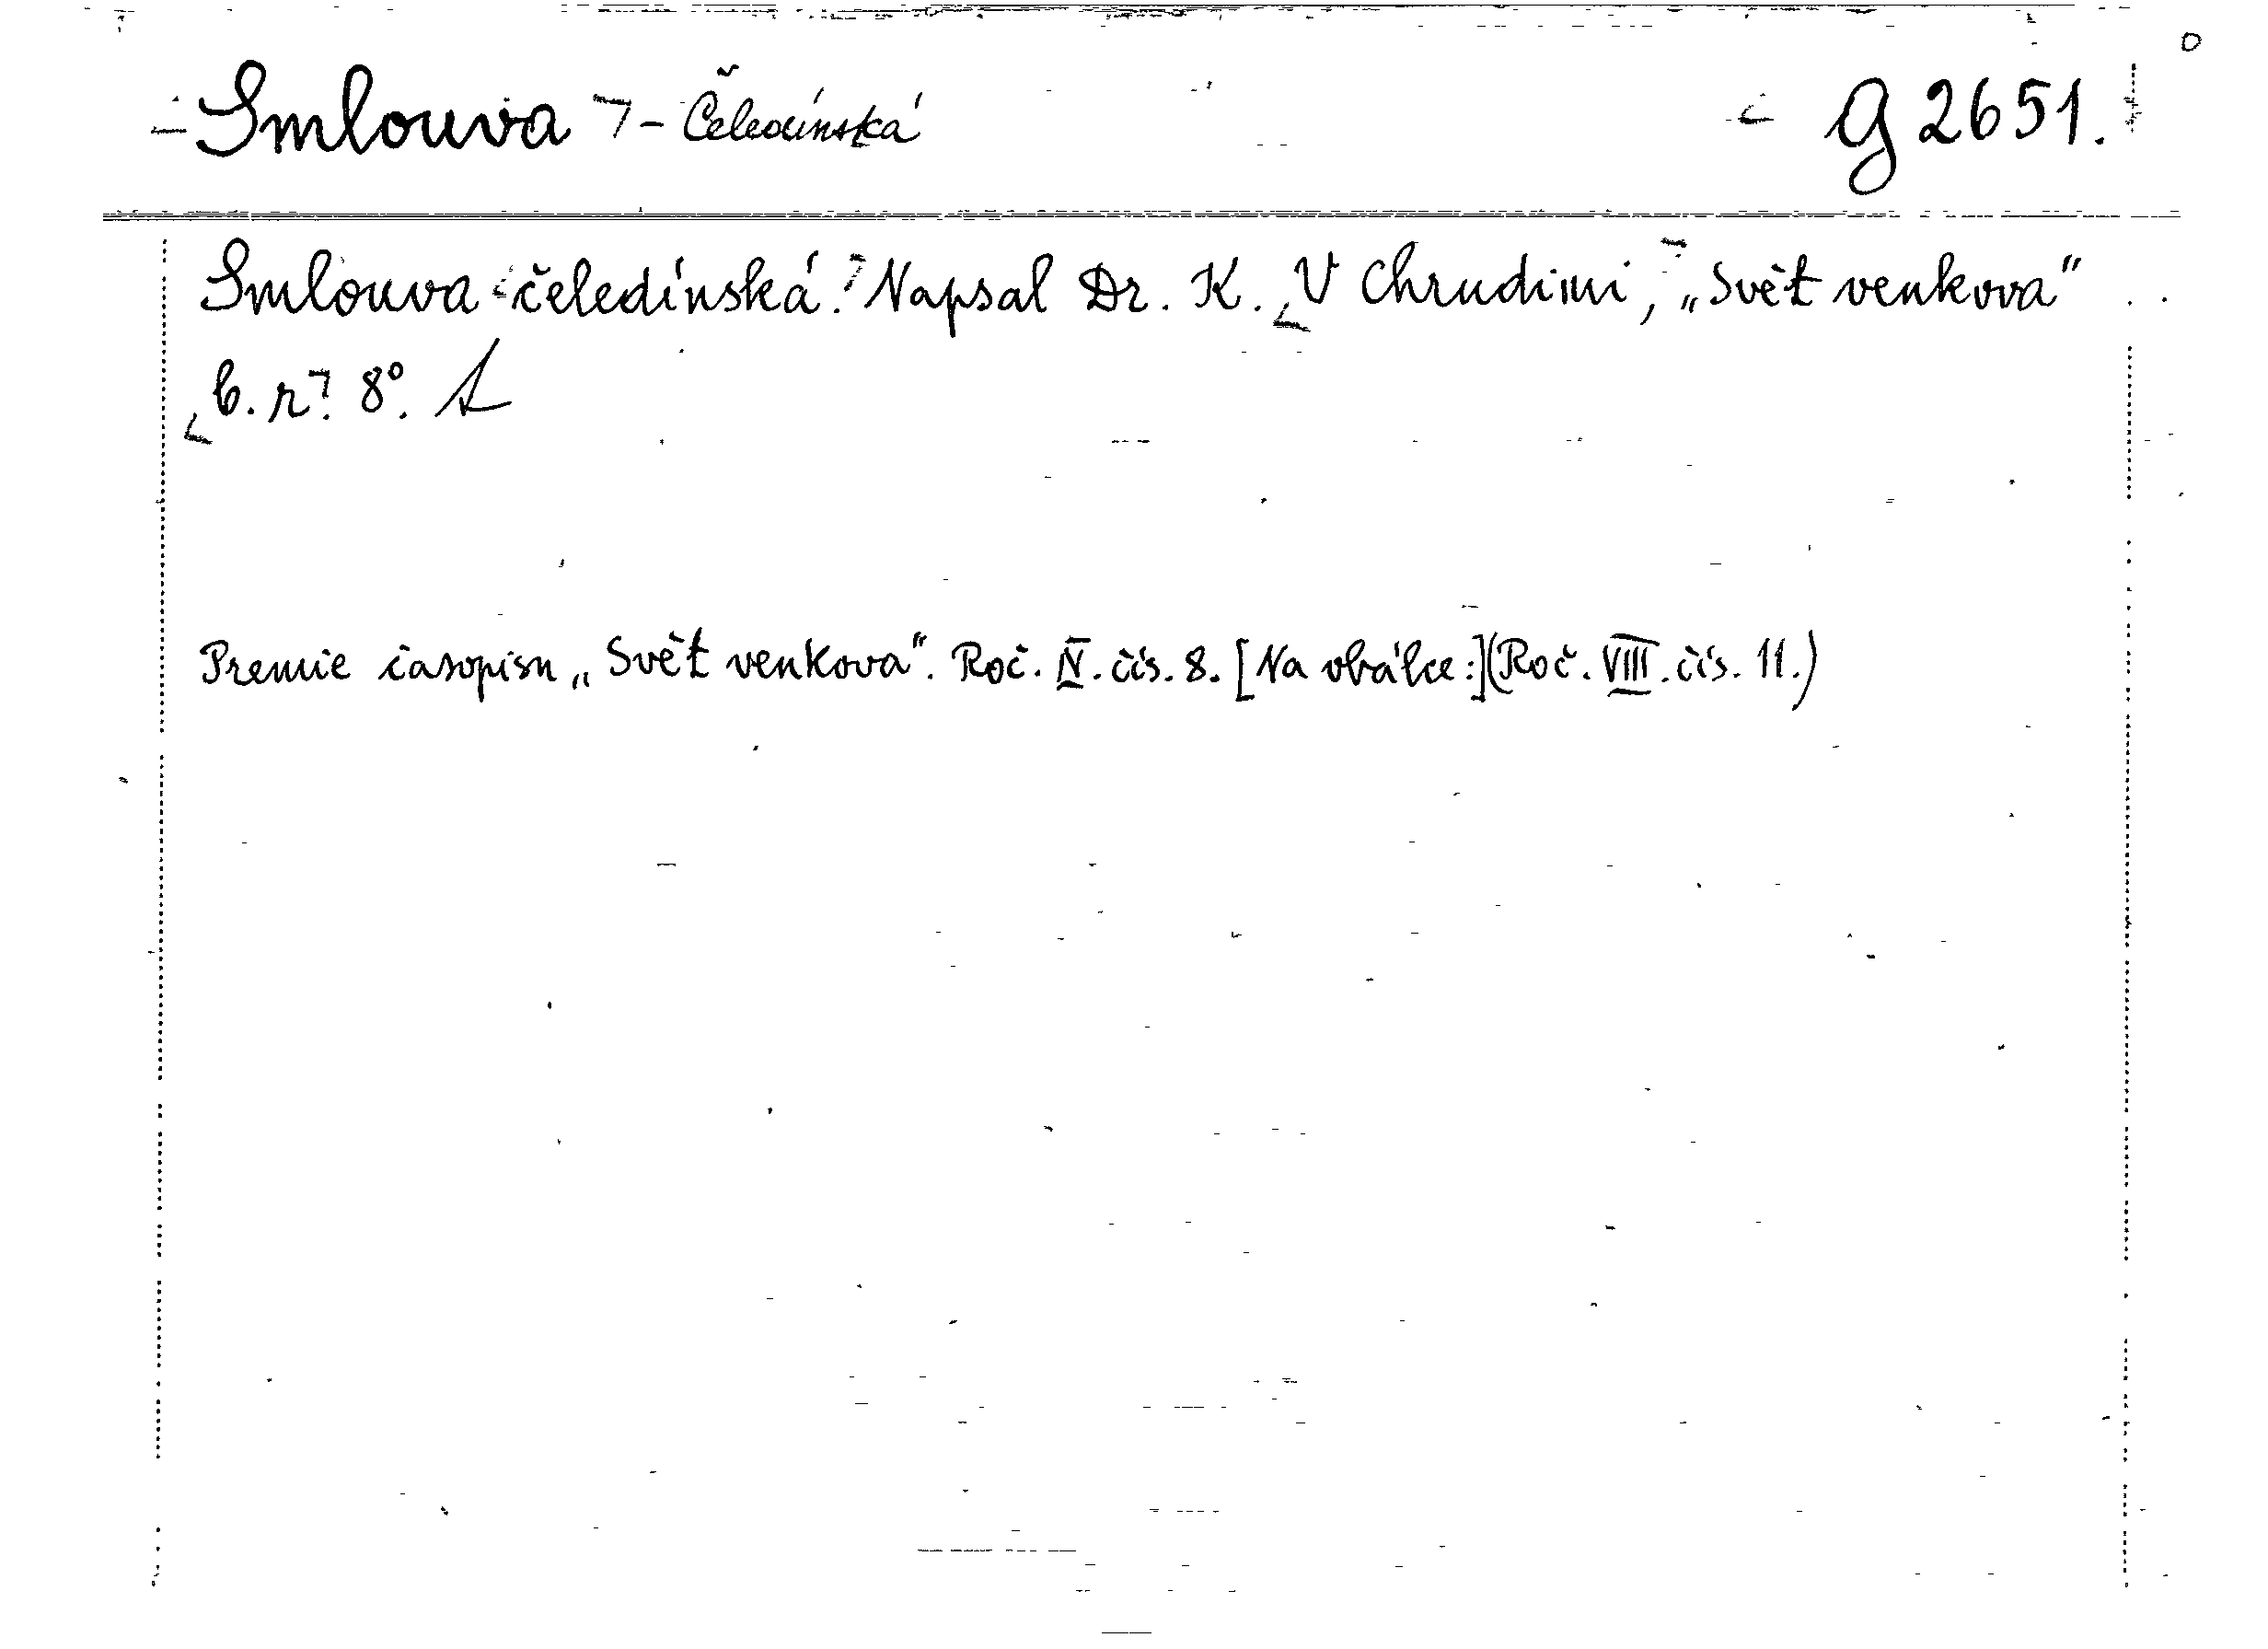 Smlouva - Čeledínská G 2651.
Smlouva čeledínská. Napsal Dr. K. V Chrudimi, „Svět venkova"
b. r. 8°.
Premie časopisu „Svět venkova". Roč. IV. čís. 8. [Na obálce:] (Roč. VIII. čís. 11.)